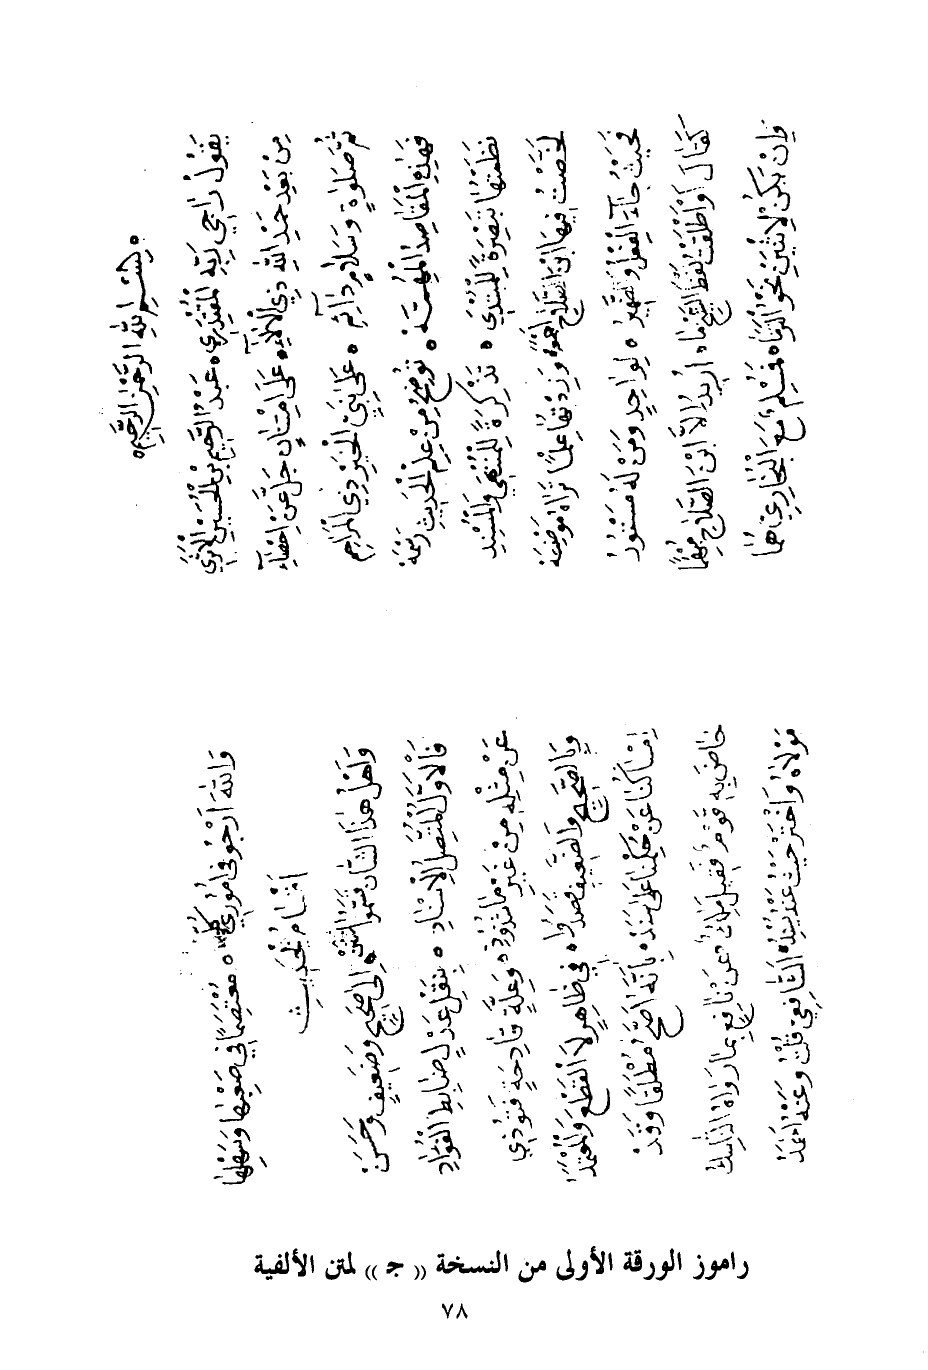 بسم الله الرحمن الرحيم
يَقُولُ رَاجِي رَبِّهِ الْمُقْتَدِرِ ۞ عَبْدُ الرَّحِيمِ بْنُ الْحُسَيْنِ الْأَثَرِي
مِنْ بَعْدِ حَمْدِ اللهِ ذِي الْآلَاءِ ۞ عَلَى امْتِنَانٍ جَلَّ عَنْ إِحْصَاءِ
ثُمَّ صَلَاةٍ وَسَلَامٍ دَائِمِ ۞ عَلَى نَبِيِّ الْخَيْرِ ذِي الْمَرَاحِمِ
فَهَذِهِ الْمَقَاصِدُ الْمُهِمَّهْ ۞ تُوضِحُ مِنْ عِلْمِ الْحَدِيثِ رَسْمَهْ
نَظَمْتُهَا تَبْصِرَةً لِلْمُبْتَدِي ۞ تَذْكِرَةً لِلْمُنْتَهِي وَالْمُسْنِدِ
لَخَّصْتُ فِيهَا ابْنَ الصَّلَاحِ أَجْمَعَهْ وَزِدْتُهَا عِلْمًا تَرَاهُ مَوْضِعَهْ
فَحَيْثُ جَاءَ الْفِعْلُ وَالضَّمِيرُ ۞ لِوَاحِدٍ وَمَنْ لَهُ مَسْتُورُ
كَقَالَ أَوْ أَطْلَقْتُ لَفْظَ الشَّيْخِ مَا ۞ أُرِيدُ إِلَّا ابْنَ الصَّلَاحِ مُبْهَمَا
وَإِنْ يَكُنْ لِاثْنَيْنِ نَحْوُ الْتَزَمَا ۞ فَمُسْلِمٌ مَعَ الْبُخَارِيِّ هُمَا
وَاللهَ أَرْجُو فِي أُمُورِي كُلِّهَا ۞ مُعْتَصَمًا فِي صَعْبِهَا وَسَهْلِهَا
أَقْسَامُ الْحَدِيثِ
وَأَهْلُ هَذَا الشَّأْنِ قَسَّمُوا السُّنَنْ ۞ إِلَى صَحِيحٍ وَضَعِيفٍ وَحَسَنْ
فَالْأَوَّلُ الْمُتَّصِلُ الْإِسْنَادِ ۞ بِنَقْلِ عَدْلٍ ضَابِطِ الْفُؤَادِ
عَنْ مِثْلِهِ مِنْ غَيْرِ مَا شُذُوذِ ۞ وَعِلَّةٍ قَادِحَةٍ فَتُوذِي
وَبِالصَّحِيحِ وَالضَّعِيفِ قَصَدُوا ۞ فِي ظَاهِرٍ لَا الْقَطْعَ وَالْمُعْتَمَدُ
إِمْسَاكُنَا عَنْ حُكْمِنَا عَلَى سَنَدْ ۞ بِأَنَّهُ أَصَحُّ مُطْلَقًا وَقَدْ
خَاضَ بِهِ قَوْمٌ فَقِيلَ مَالِكُ عَنْ نَافِعٍ بِمَا رَوَاهُ النَّاسِكُ
مَوْلَاهُ وَاخْتَرْ حَيْثُ عَنْهُ يُسْنِدُ ۞ الشَّافِعِي قُلْتُ وَعَنْهُ أَحْمَدُ
راموز الورقة الأولى من النسخة (( جـ )) لمتن الألفية
٧٨